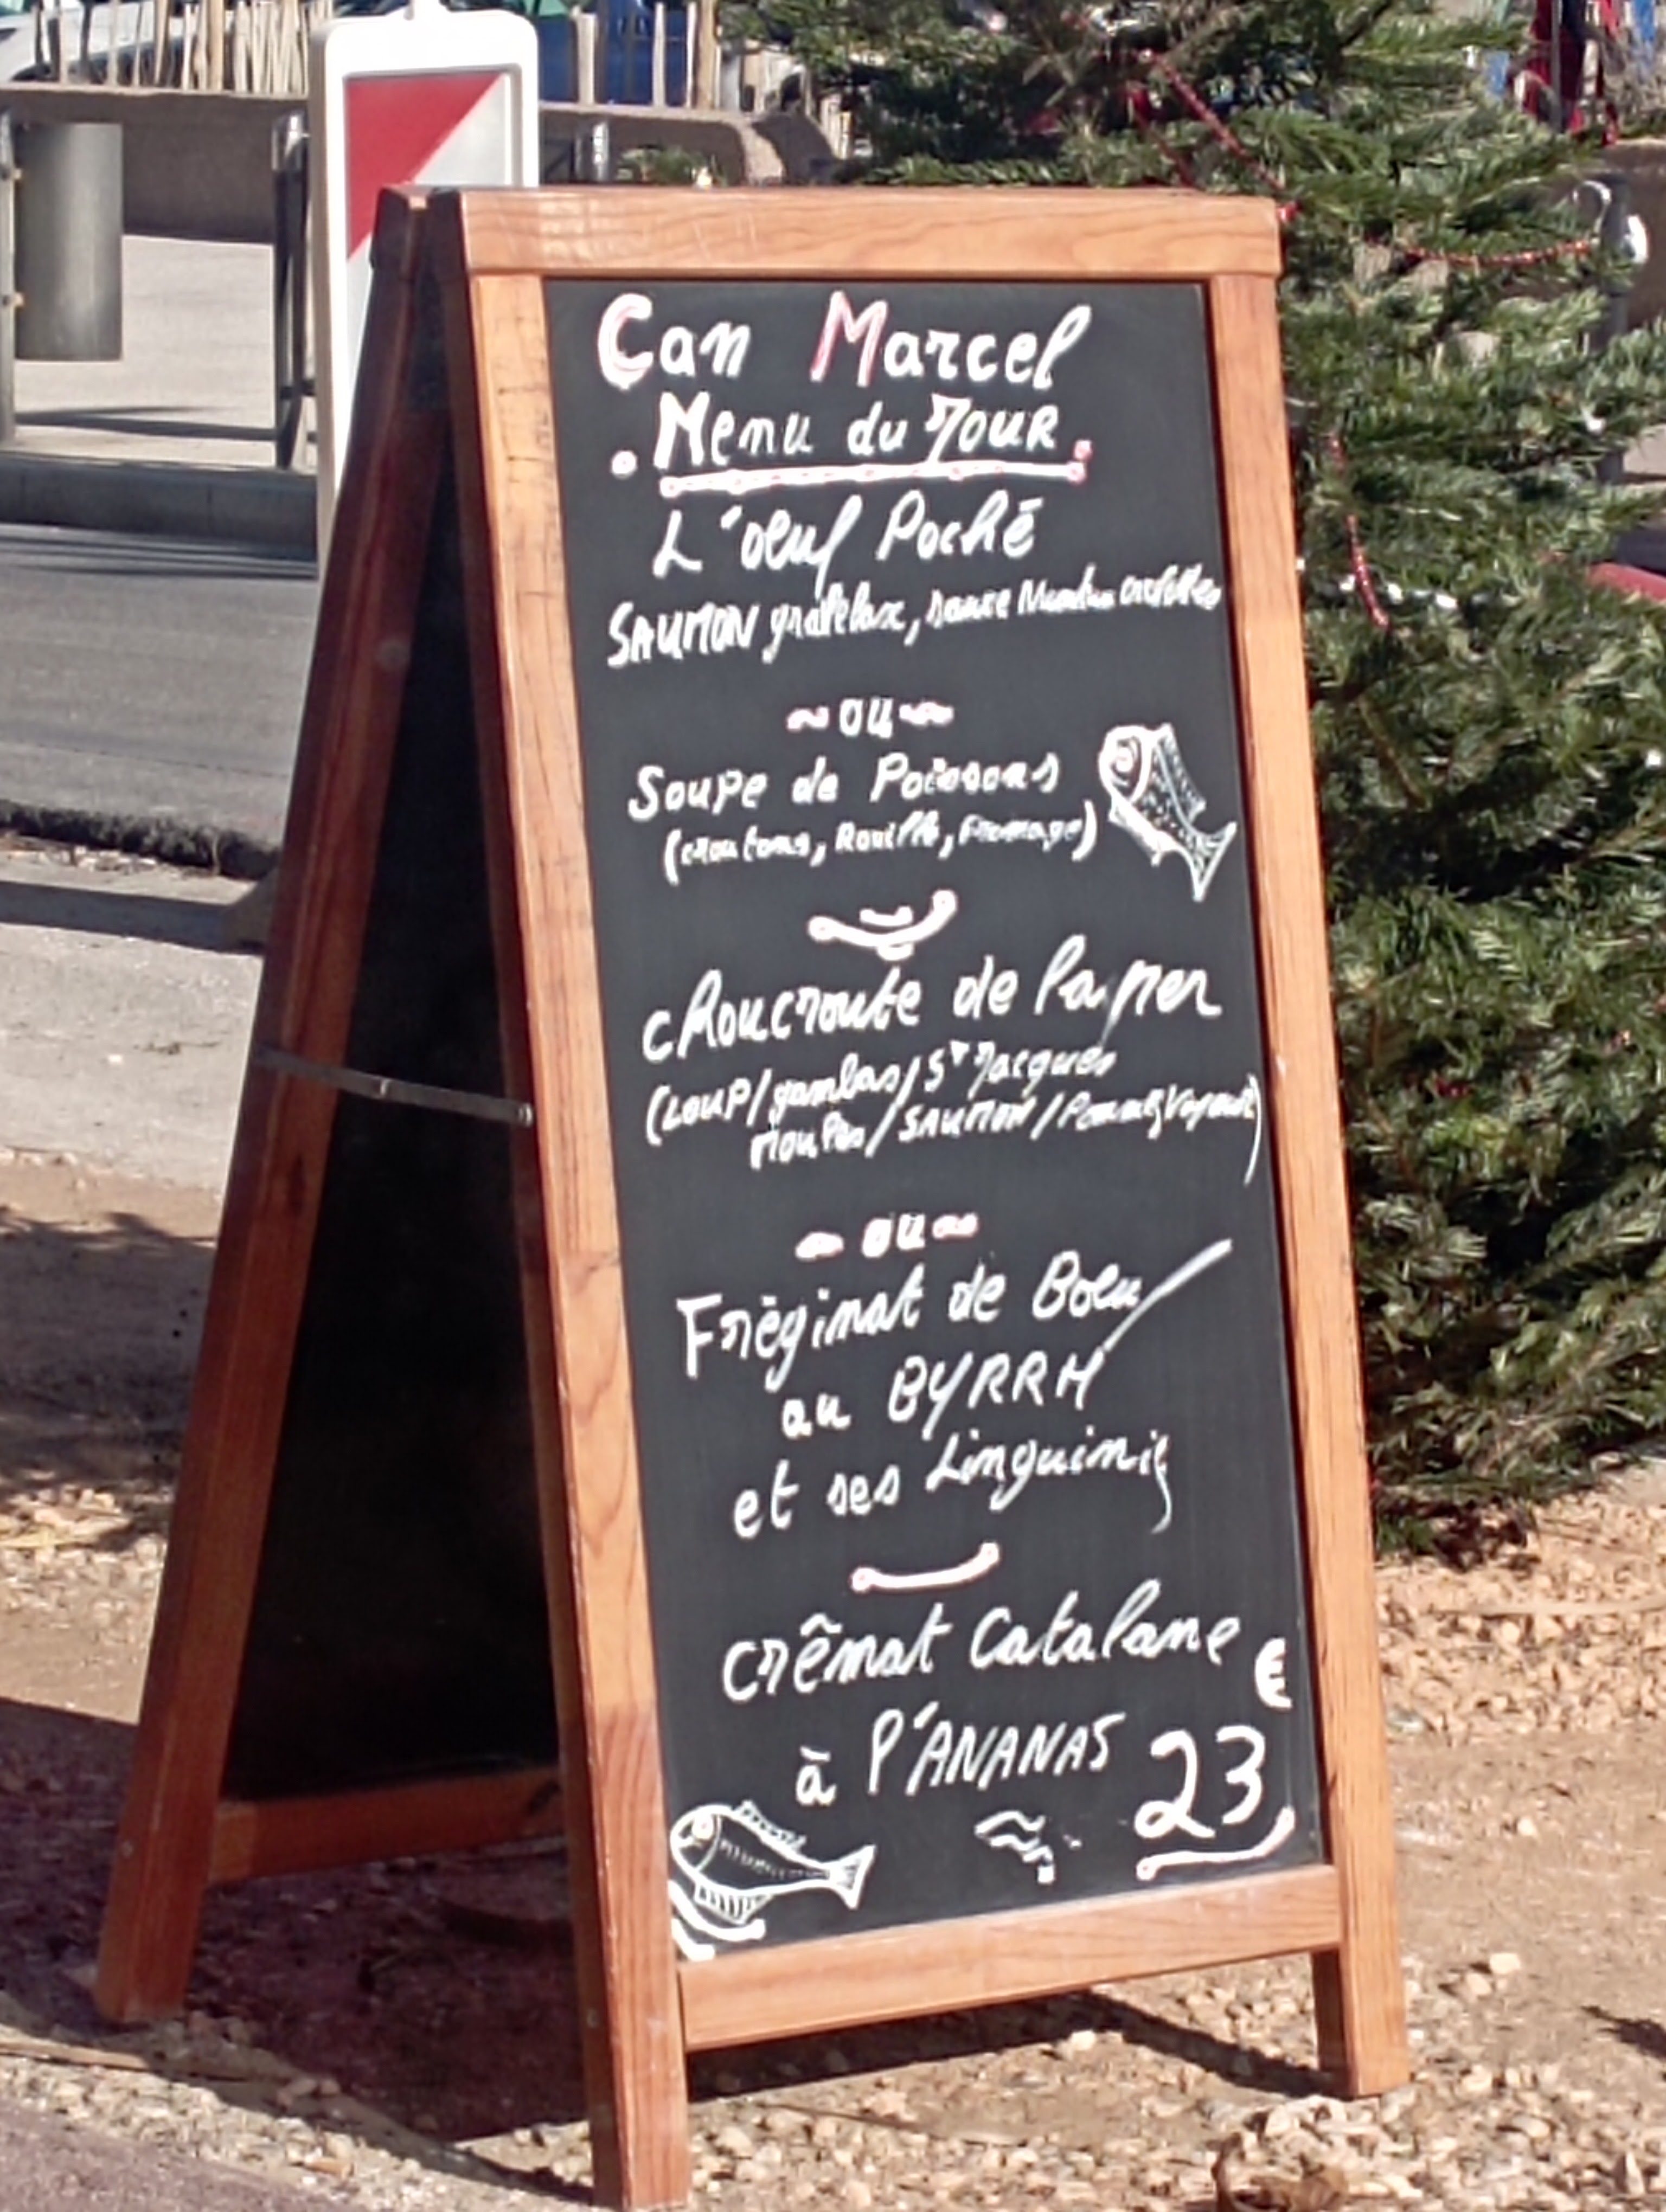 Can Marcel
. Menu du JOUR .
L'oeuf Poché
SAUMON gravelax, sauce
~ ou ~
Soupe de Poissons
(croutons, Rouille, Fromage)
choucroute de la mer
(LOUP/gambas/St Jacques
moules/SAUMON/
~ ou ~
Frèginat de Boeuf
au BYRRH
et ses Linguinis
crêmat Catalane
à l'ANANAS
23 €